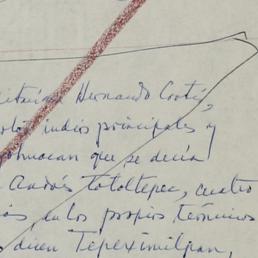 Hernando Cortés,
indios principales y
que se decía
Andrés totoltepec, cuatro
en los propios términos
dicen Tepeximilpan,